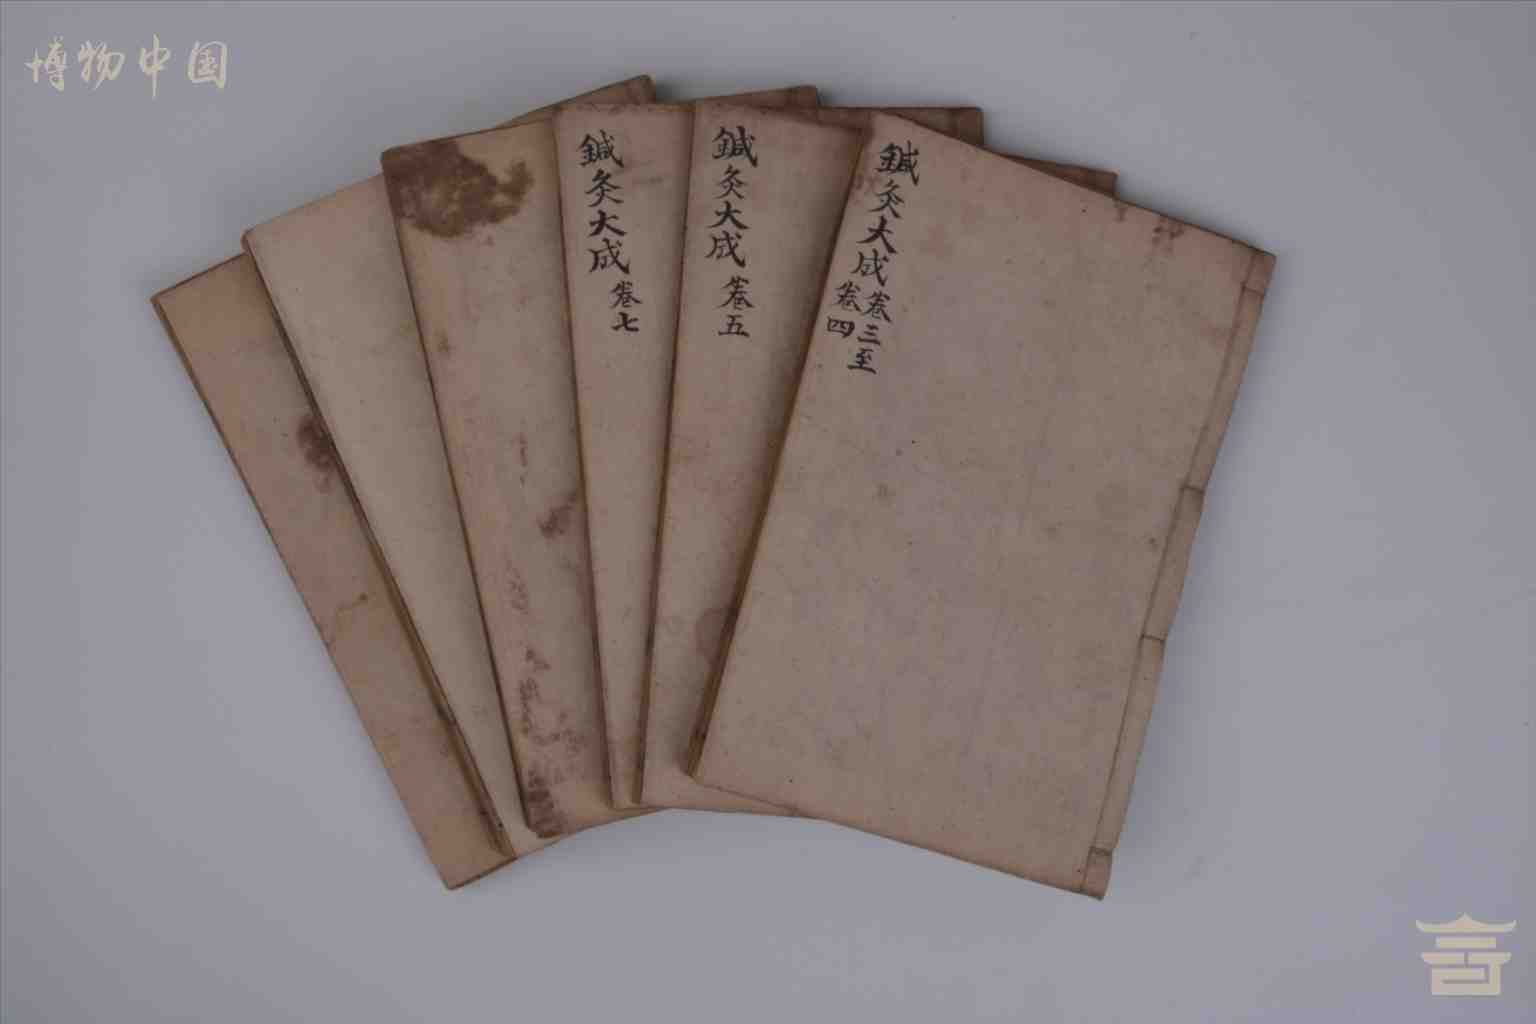 博物中国
鍼灸大成
卷七
鍼灸大成
卷五
鍼灸大成
卷三至
卷四